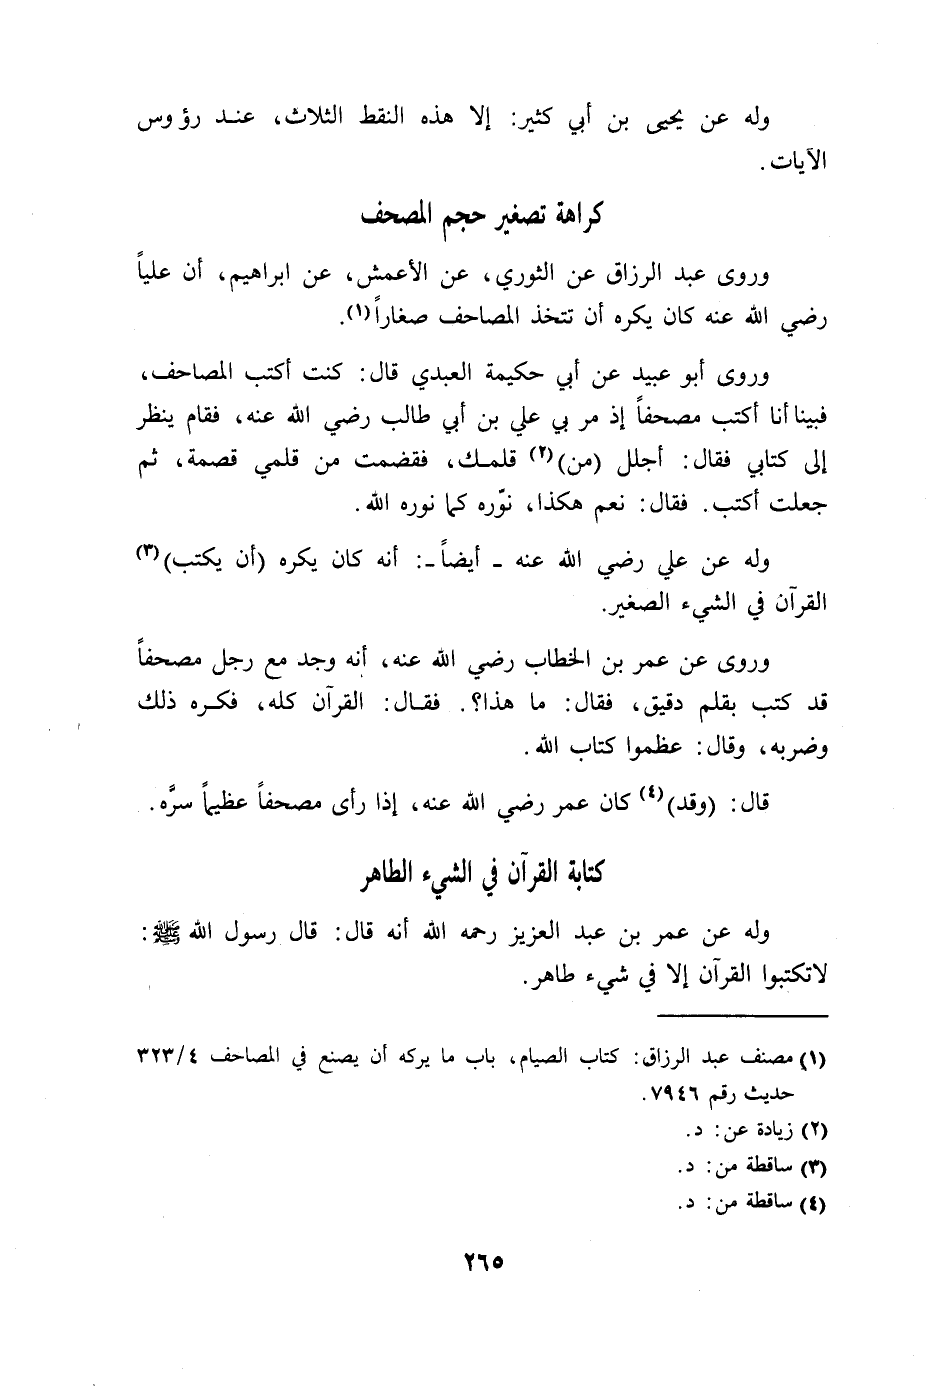 وله عن يحيى بن أبي كثير: إلا هذه النقط الثلاث، عند رؤوس
الآيات.
كراهة تصغير حجم المصحف
وروى عبد الرزاق عن الثوري، عن الأعمش، عن ابراهيم، أن علياً
رضي الله عنه كان يكره أن تتخذ المصاحف صغاراً(١).
وروى أبو عبيد عن أبي حكيمة العبدي قال: كنت أكتب المصاحف،
فبينا أنا أكتب مصحفاً إذ مر بي علي بن أبي طالب رضي الله عنه، فقام ينظر
إلى كتابي فقال: أجلل (من)(٢) قلمك، فقضمت من قلمي قصمة، ثم
جعلت أكتب. فقال: نعم هكذا، نوّره كما نوره الله.
وله عن علي رضي الله عنه ـ أيضاً ـ: أنه كان يكره (أن يكتب)(٣)
القرآن في الشيء الصغير.
وروى عن عمر بن الخطاب رضي الله عنه، أنه وجد مع رجل مصحفاً
قد كتب بقلم دقيق، فقال: ما هذا؟. فقال: القرآن كله، فكره ذلك
وضربه، وقال: عظموا كتاب الله.
قال: (وقد)(٤) كان عمر رضي الله عنه، إذا رأى مصحفاً عظيماً سرَّه.
كتابة القرآن في الشيء الطاهر
وله عن عمر بن عبد العزيز رحمه الله أنه قال: قال رسول الله ﷺ:
لاتكتبوا القرآن إلا في شيء طاهر.
(١) مصنف عبد الرزاق: كتاب الصيام، باب ما يركه أن يصنع في المصاحف ٣٢٣/٤
حديث رقم ٧٩٤٦.
(٢) زيادة عن: د.
(٣) ساقطة من: د.
(٤) ساقطة من: د.
٢٦٥